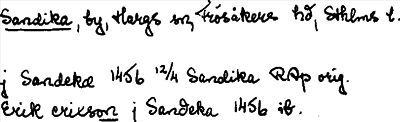 Sandika, by, Hargs sn, Frösåkers hd, Sthlms l.
j Sandeka 1456 12/4 Sandika RAp orig.
Erik erixson j Sandeka 1456 ib.